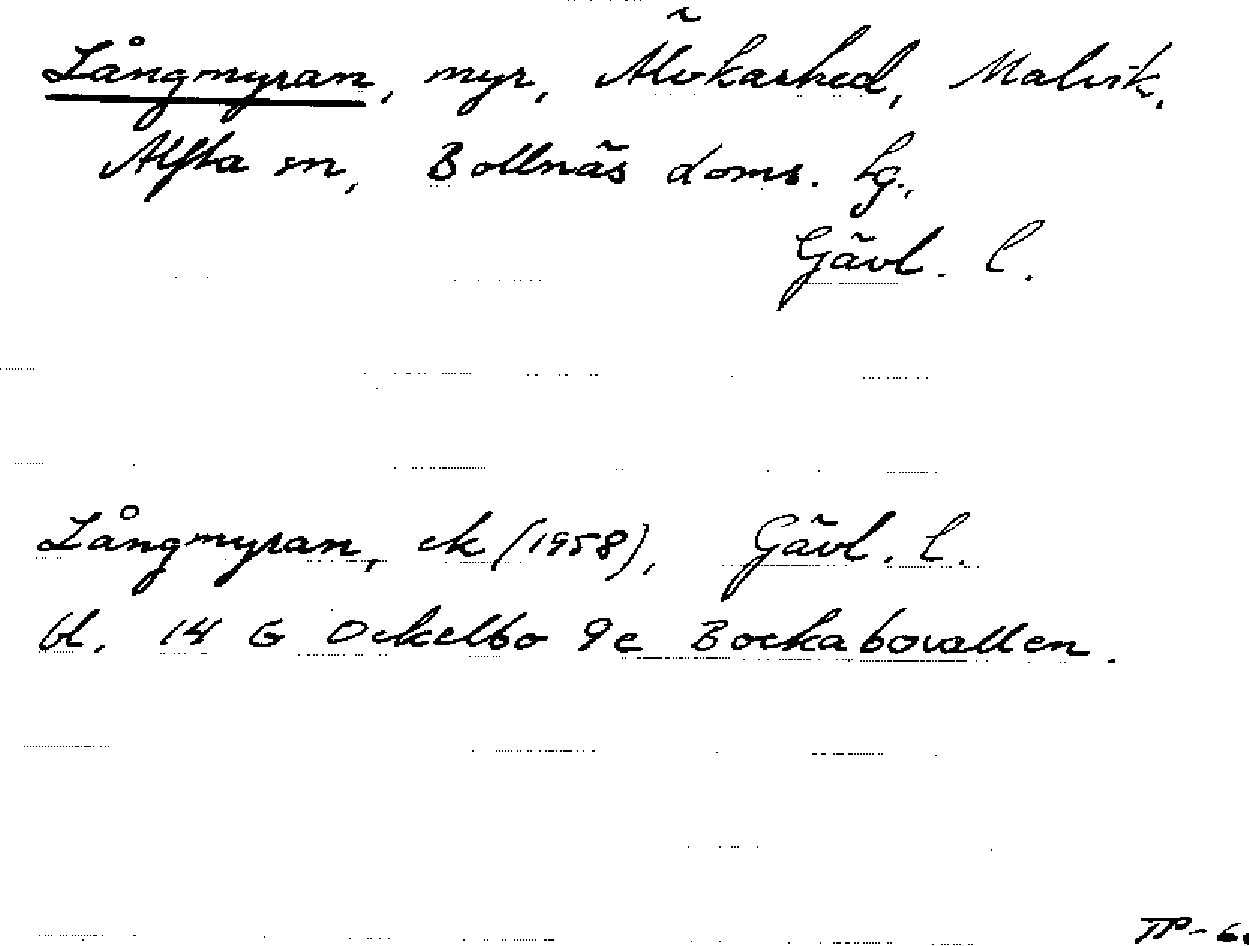 Långmyran, myr, Älvkarhed, Malvik,
Alfta sn, Bollnäs doms. lg.,
Gävl. l.
Långmyran, ek (1958), Gävl. l.
bl. 14 G Ockelbo 9c Bockabovallen.